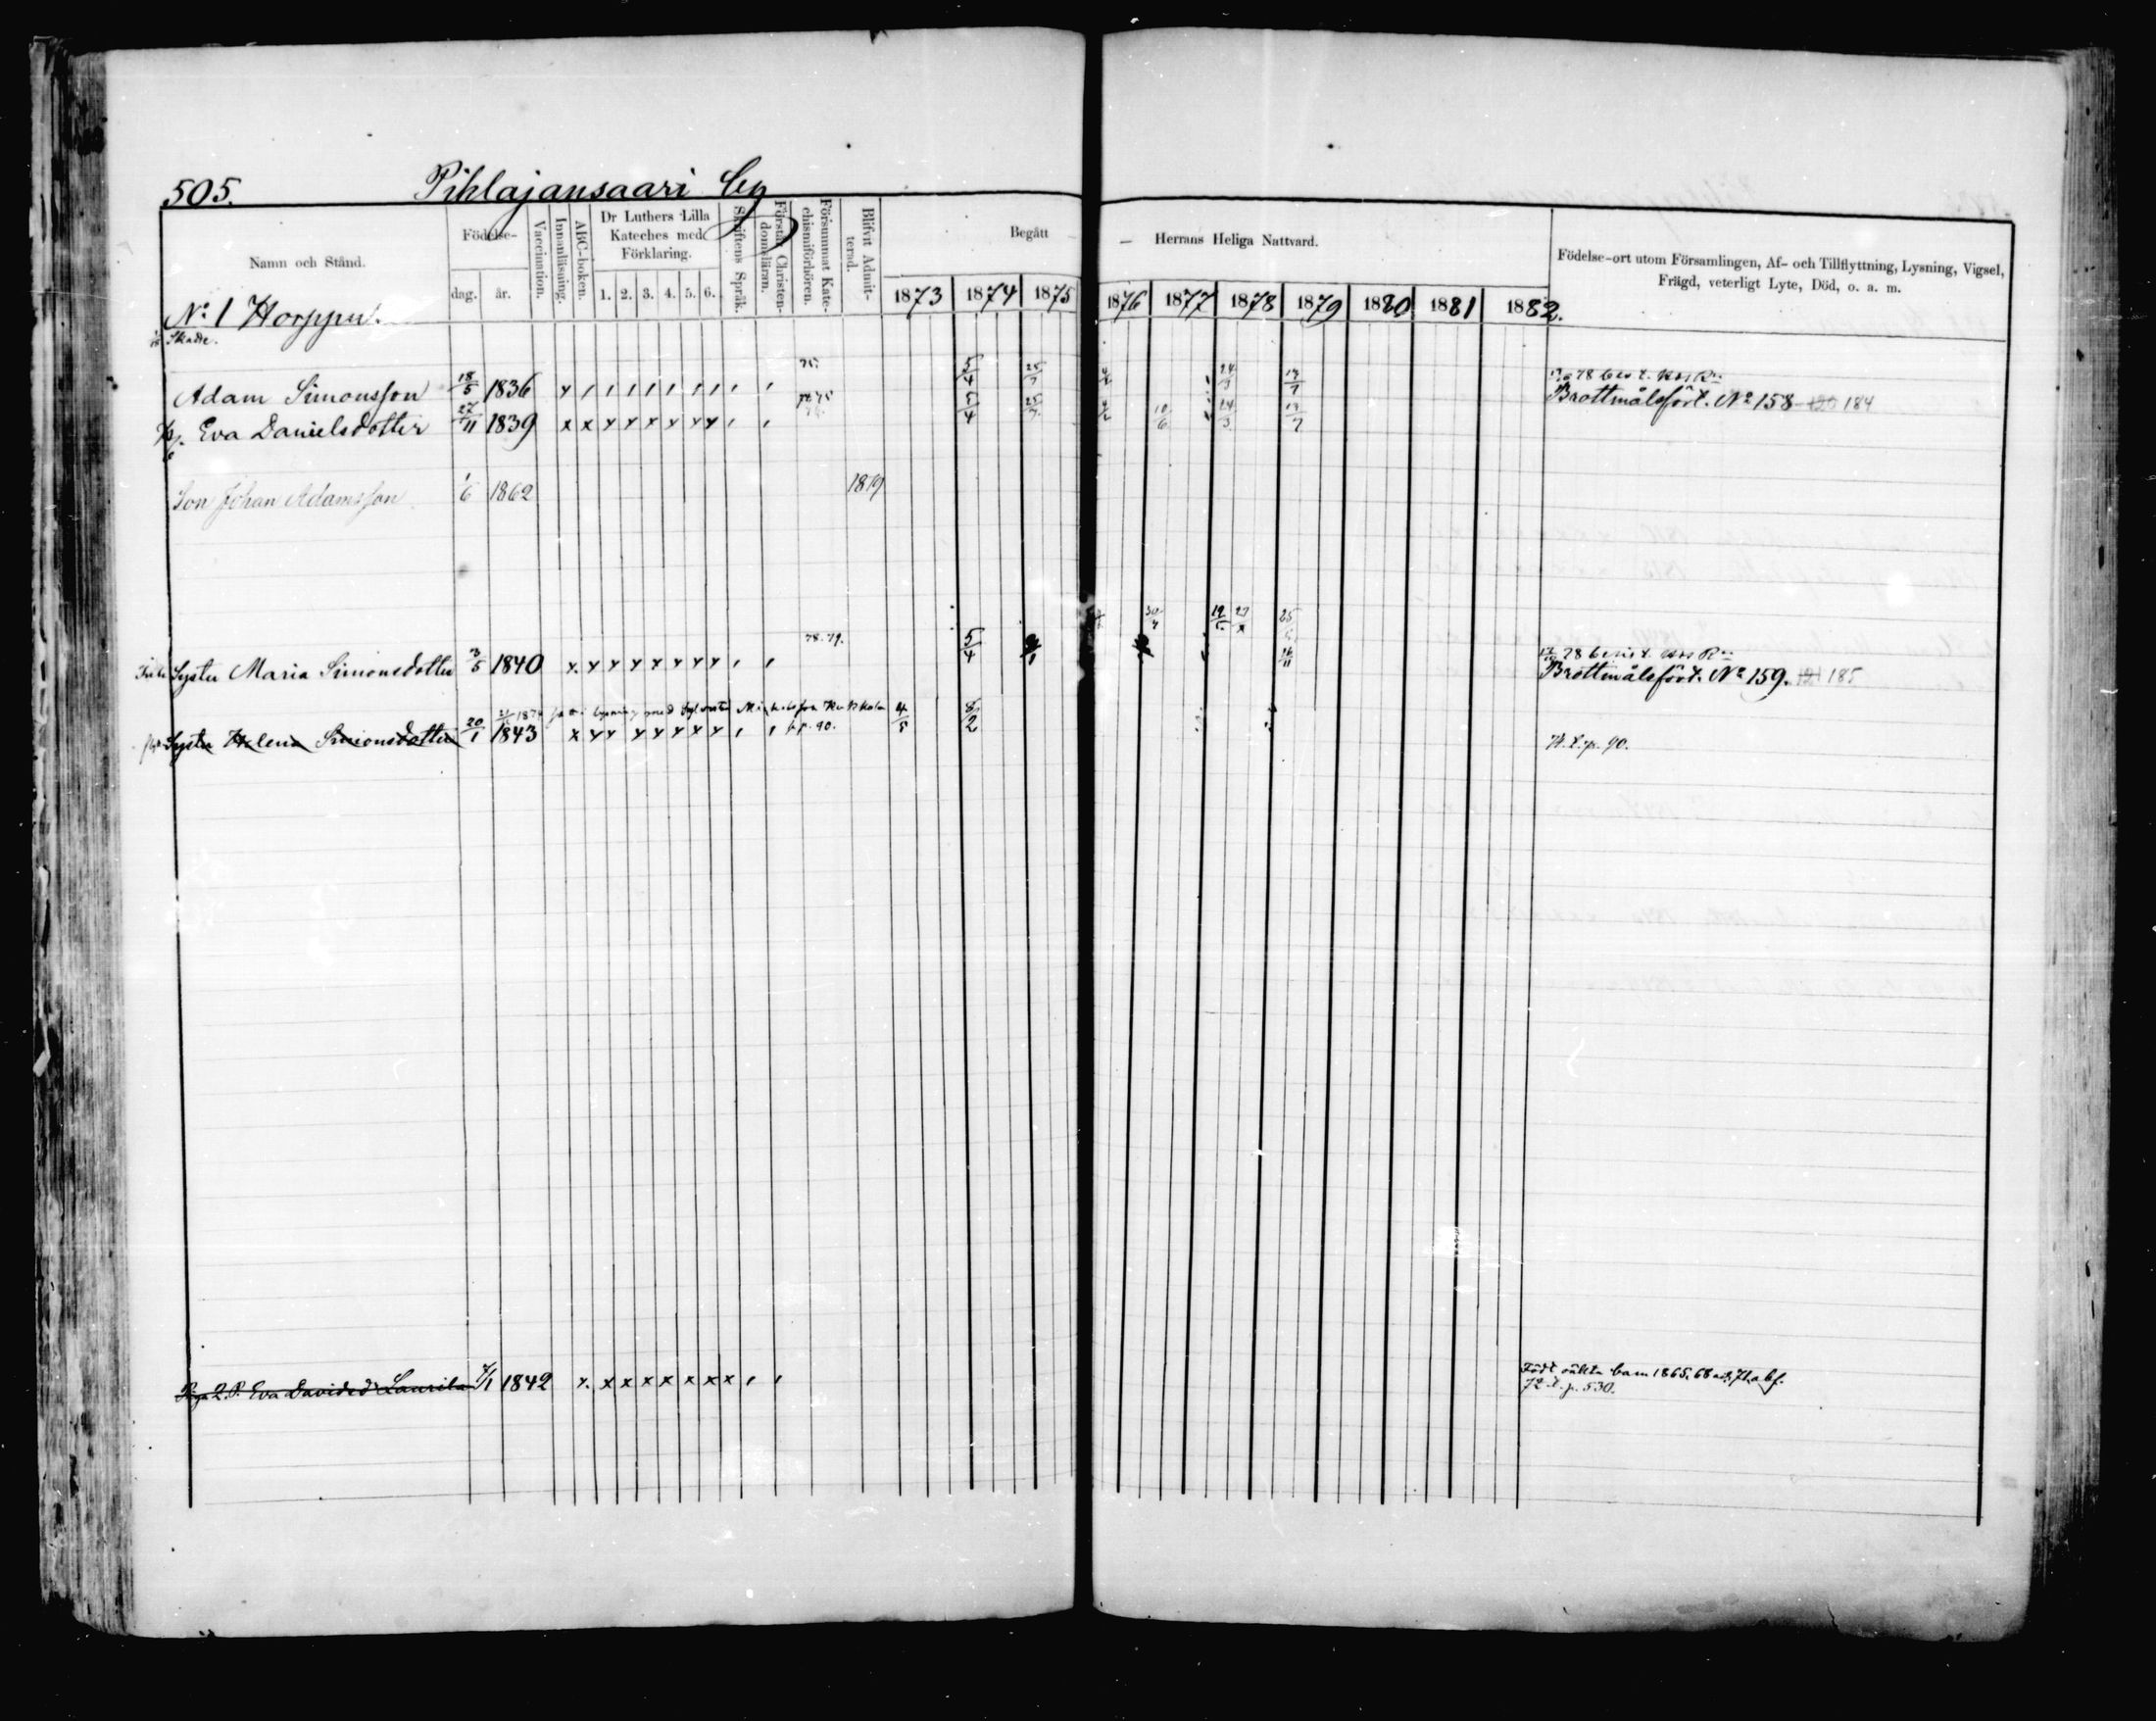 505. Pihlajansaari by
Namn och Stånd.
Födelse-
dag. år.
Vaccination.
Innanläsning.
ABC-boken.
Dr Luthers Lilla Kateches med Förklaring.
1. 2. 3. 4. 5. 6.
Skriftens Språk.
Förstår Christendomsläran.
Försummat Katechismiförhören.
Blifvit Admitterad.
Begått — Herrans Heliga Nattvard.
1873 1874 1875 1876 1877 1878 1879 1880 1881 1882.
Födelse-ort utom Församlingen, Af- och Tillflyttning, Lysning, Vigsel,
Frägd, veterligt Lyte, Död, o. a. m.
No: 1 Horppu.
Skatte.
75.
Adam Simonsson 18/5 1836 x 5/4 25/7 24/3 13/7 Brottmålsfört. No 158 184
Eva Danielsdotter 27/11 1839 x x x x x x x x 5/4 25/7 10/6 24/3 13/7
Son Johan Adamsson 1/6 1862 1879
78. 79.
Syster Maria Simonsdotter 3/5 1840 x x x x x x x x 5/4 Brottmålsfört. No 159. 185
Syster Helena Simonsdotter 20/1 1843 x x x x x x x x p. 90. 4/5 8/2 t. p. 90.
Eva Davidsd Laurila 7/1 1842 x x x x x x x x
Född oäkta barn 1865, 68
72 t. p. 530.